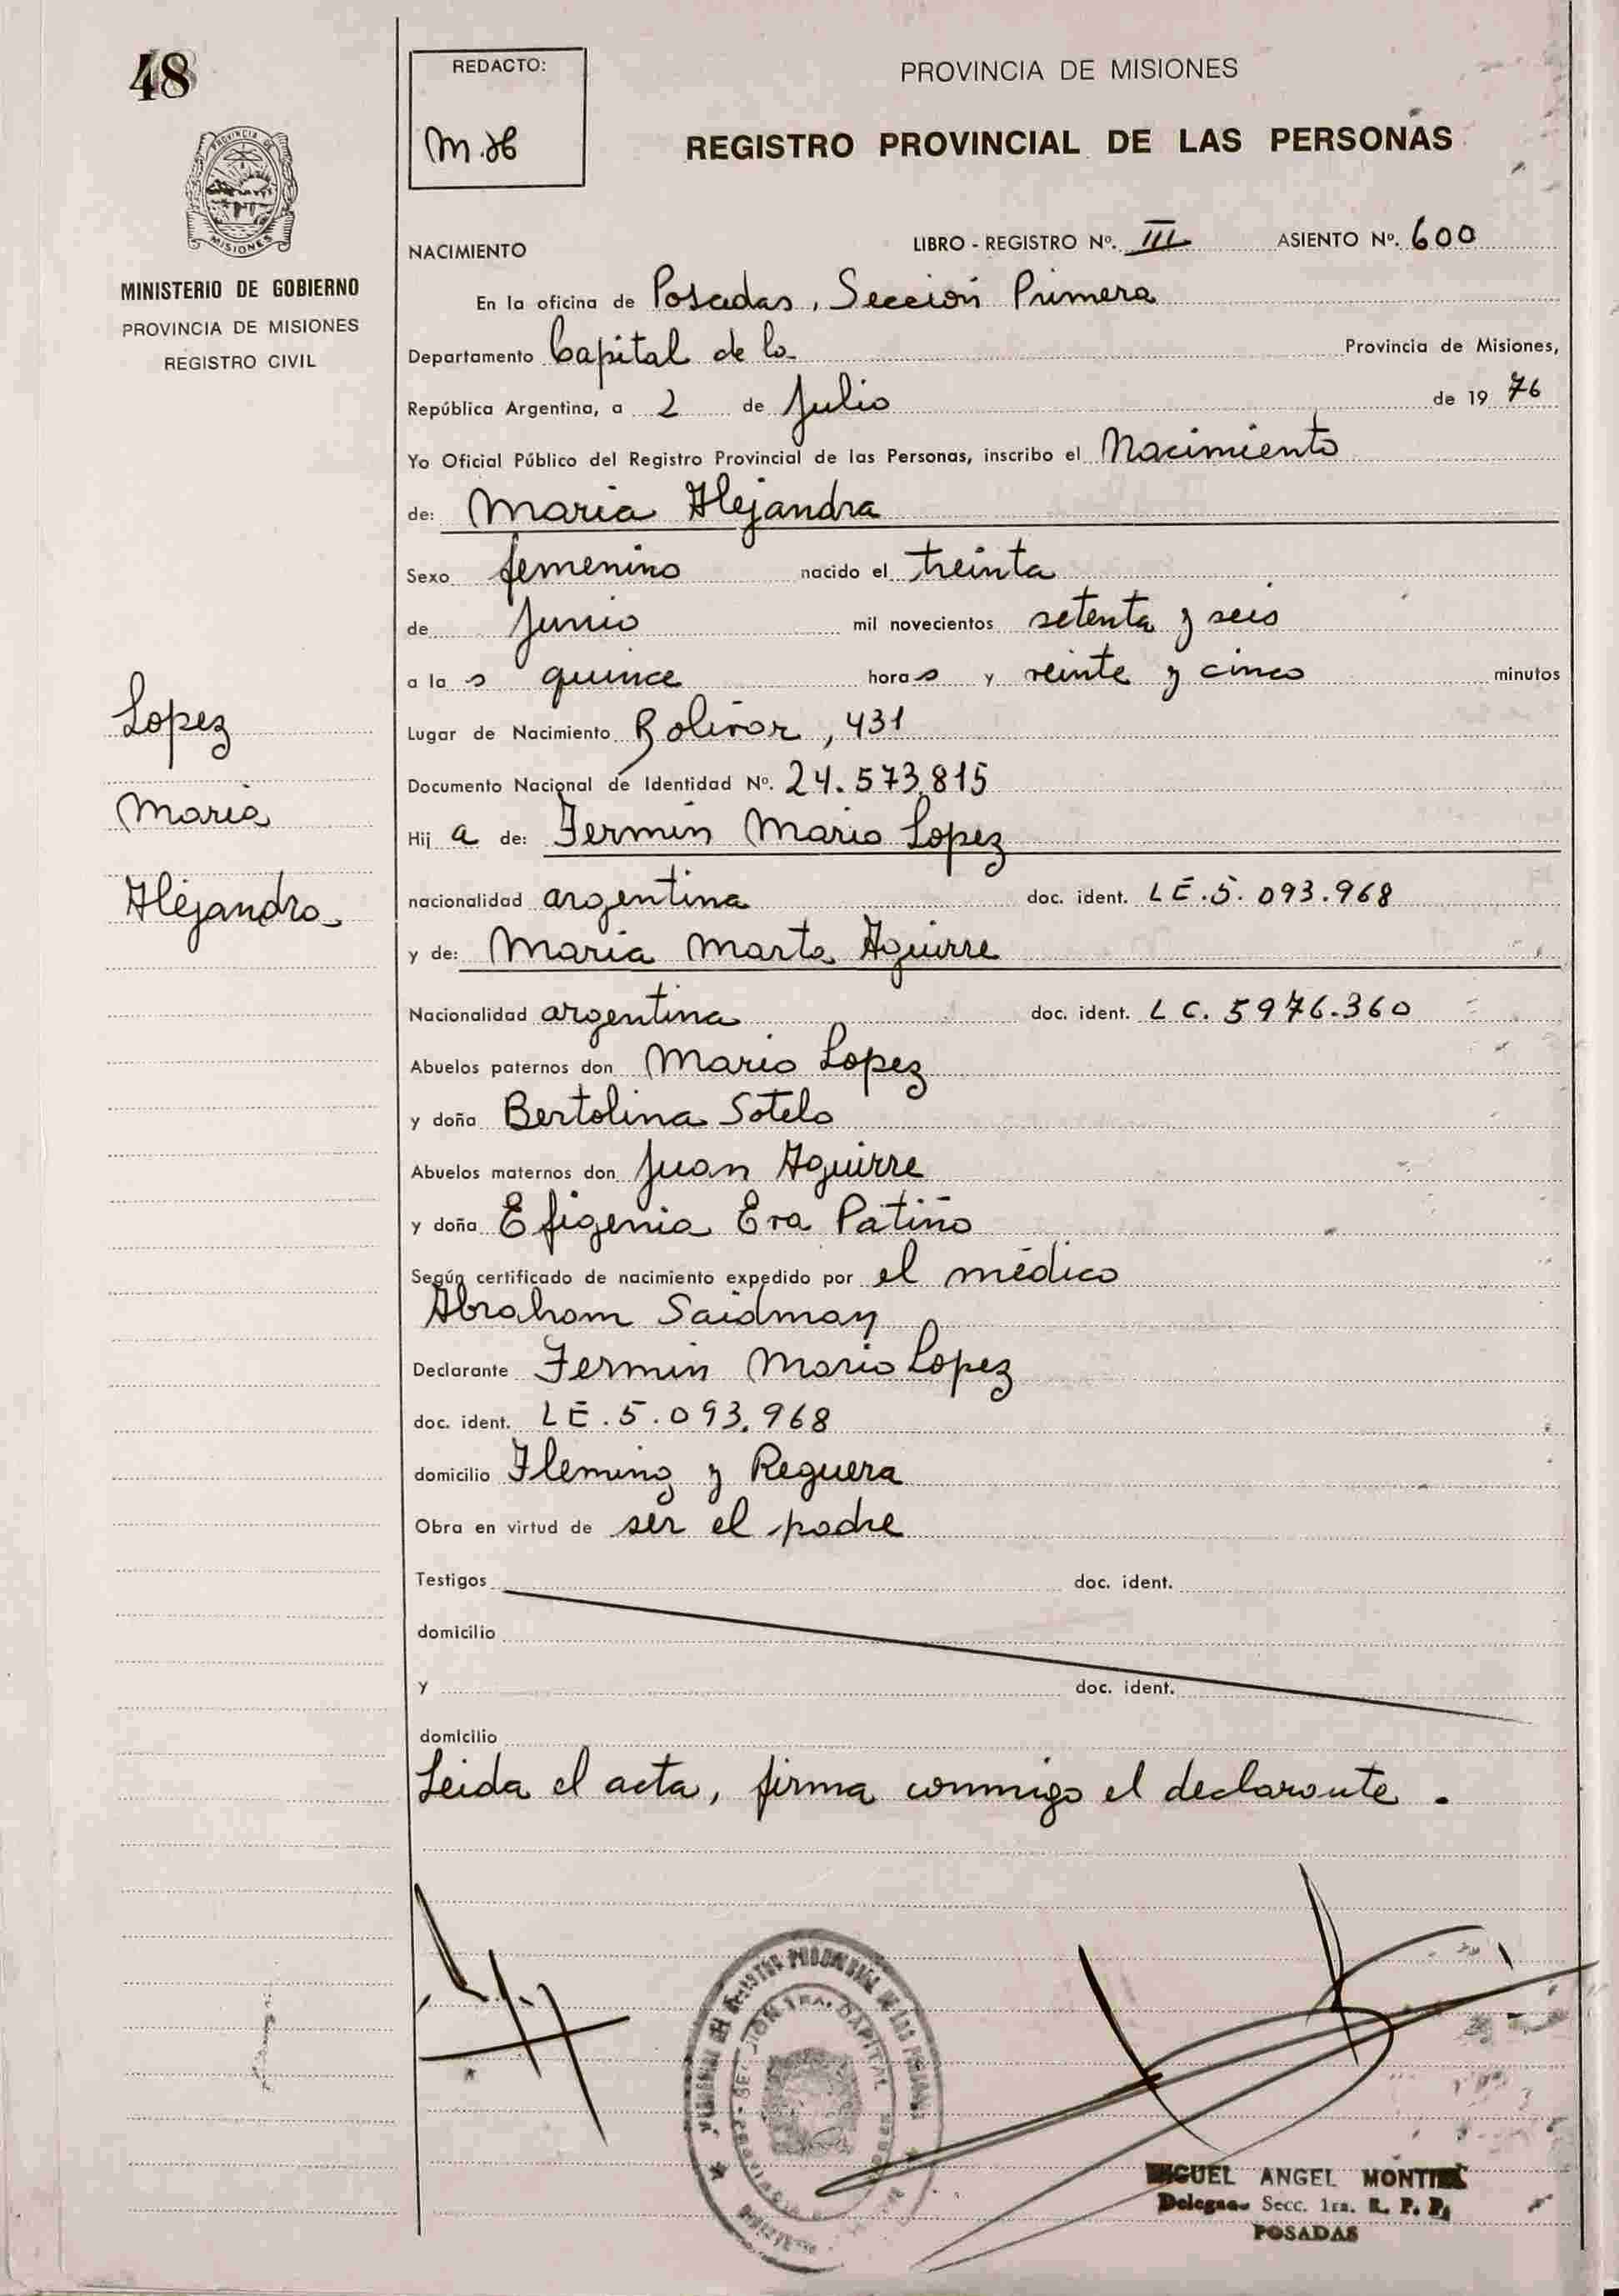 48
REDACTO:
PROVINCIA DE MISIONES
REGISTRO PROVINCIAL DE LAS PERSONAS
PROVINCIA DE
MISIONES
MINISTERIO DE GOBIERNO
PROVINCIA DE MISIONES
REGISTRO CIVIL
NACIMIENTO LIBRO - REGISTRO Nº. III ASIENTO Nº. 600
En la oficina de Posadas, Sección Primera
Departamento Capital de la Provincia de Misiones,
República Argentina, a 2 de Julio de 1976
Yo Oficial Público del Registro Provincial de las Personas, inscribo el Nacimiento
de: Maria Alejandra
Sexo femenino nacido el treinta
de Junio mil novecientos setenta y seis
a la s quince horas y veinte y cinco minutos
Lugar de Nacimiento Bolívar, 431
Documento Nacional de Identidad Nº. 24.573.815
Hij a de: Fermin Mario Lopez
nacionalidad argentina doc. ident. LE.5.093.968
y de: Maria Marta Aguirre
Nacionalidad argentina doc. ident. LC. 5976.360
Abuelos paternos don Mario Lopez
y doña Bertolina Sotelo
Abuelos maternos don Juan Aguirre
y doña Efigenia Eva Patiño
Según certificado de nacimiento expedido por el médico
Abraham Saidman
Declarante Fermin Mario Lopez
doc. ident. LE.5.093.968
domicilio Fleming y Reguera
Obra en virtud de ser el padre
Testigos doc. ident.
domicilio
y doc. ident.
domicilio
Leida el acta, firma conmigo el declarante.
Lopez
Maria
Alejandra
MIGUEL ANGEL MONTIEL
Delegado Secc. 1ra. R. P. P.
POSADAS